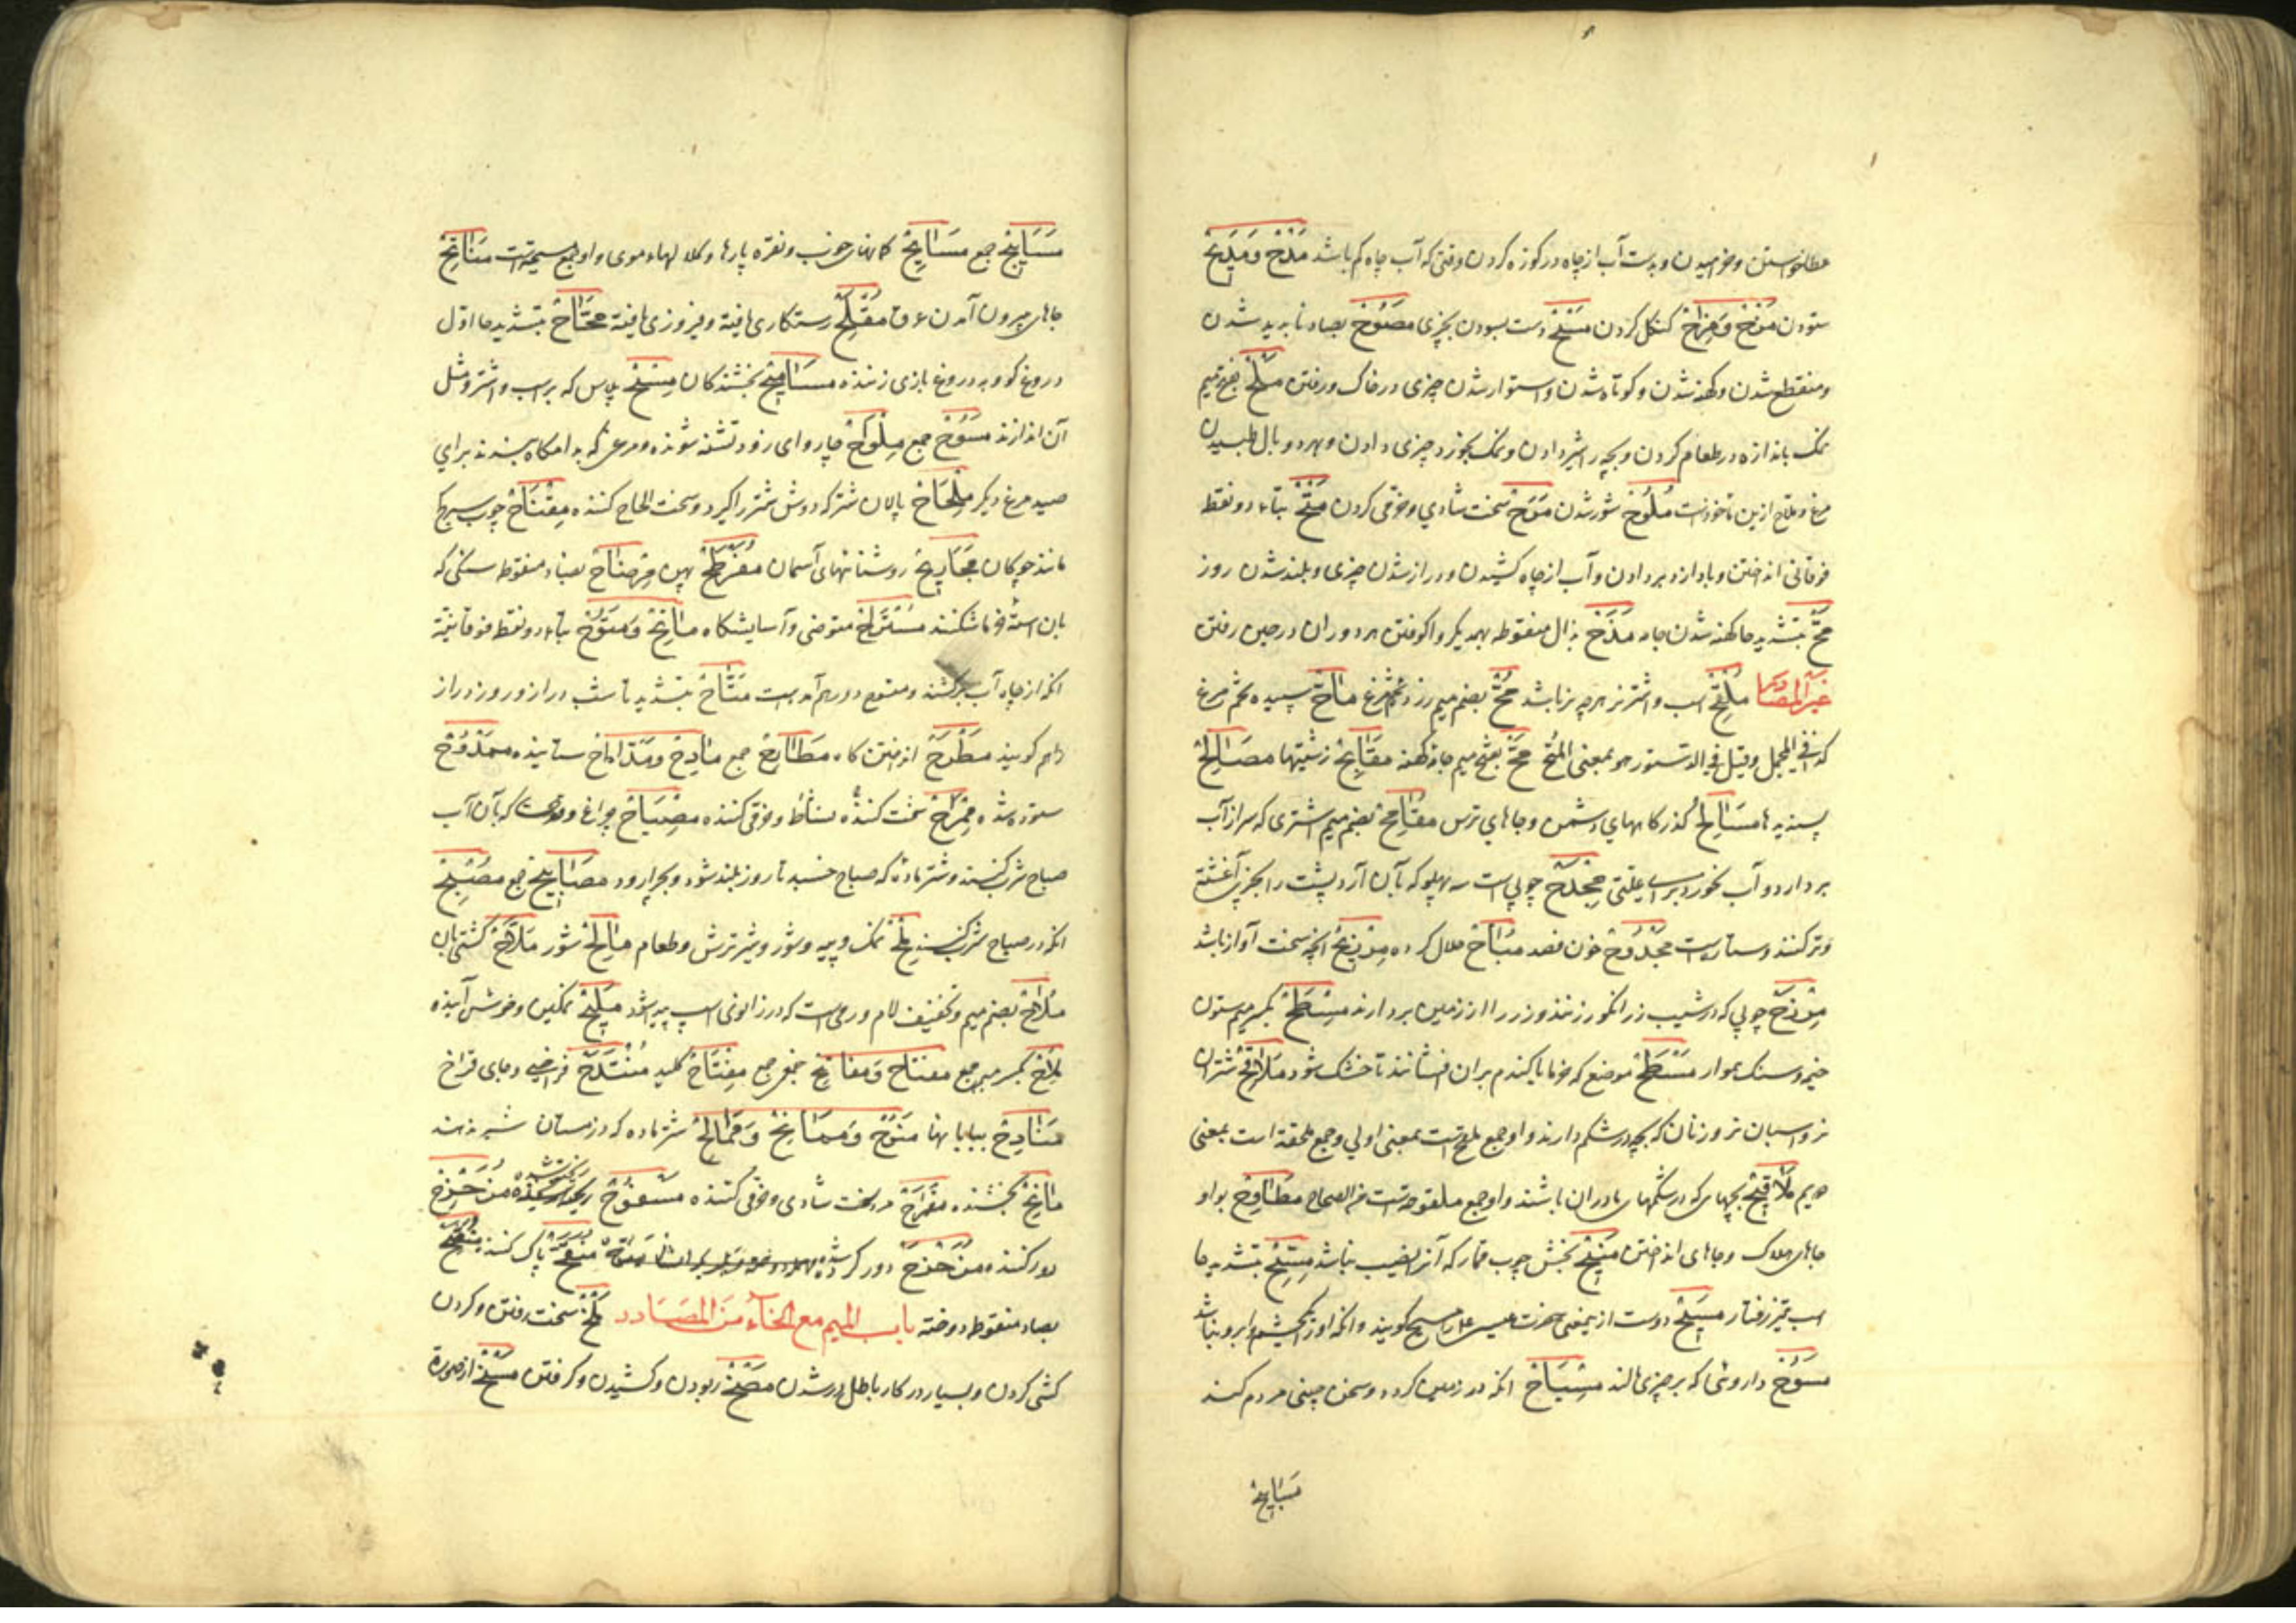 عطا خواستن و خرامیدن و بدست آب از چاه در کوزه کردن وقتی که آب چاه کم باشد مَدْحْ وَ مَدِیْحْ
ستودن مَزْحْ وَ مِزَاحْ کردن مَسْحْ دست بسودن بچیزی مُصُوْحْ بصاد ناپدید شدن
و منقطع شدن و کهنه شدن و کوتاه شدن و استوار شدن چیزی در خاک و رفتن مَلْحْ بفتح میم
نمک باندازه در طعام کردن و بچه را شیر دادن و نمک بخورد چیزی دادن و بهر دو بال طپیدن
مرغ و ملاح ازین ماخوذست مُلُوْحْ شور شدن مَرَحْ سخت شادی و خرمی کردن مَتْحْ بتاء دو نقطه
فوقانی انداختن و باد از دبر دادن و آب از چاه کشیدن و دراز شدن چیزی و بلند شدن روز
مَحّ بتشدید حا کهنه شدن جامه مَذَحْ بذال منقوطه بهمدیگر واکوفتن هر دو ران در حین رفتن
غیر المصادر مُلِحّ اسب و اشتر نر هر چه نر باشد مُحّ بضم میم زرده تخم مرغ مَاحْ سپیده تخم مرغ
کذا فی المجمل و قیل فی الدستور هو بمعنی المُحّ مَحّ بفتح میم جامه کهنه مَقَابِحْ زشتیها مَصَالِحْ
پسندیدها مَسَالِحْ گذرگاههای دشمن و جاهای ترس مُقَامِحْ بضم میم اشتری که سر از آب
بردارد و آب نخورد برای علتی مِجْدَحْ چوبی است سه پهلو که بآن آرد پشت را بچیزی آغشته
و تر کنند و ستاره ایست مَجْدُوْحْ خون فصد مُبَاحْ حلال کرده انچه سخت آواز باشد
چوبی که در شیب رز انگور زنند و رز را از زمین بردارند مِسْطَحْ بکسر میم ستون
خیمه و سنگ هموار مَسْطَحْ موضعی که خرما یا گندم بران افشانند تا خشک شود مَلَاقِحْ شتران
نر و اسبان نر و زنان که بچه در شکم دارند و او جمع ملقح است بمعنی اولی و جمع ملقحه است بمعنی
دویم مَلَاقِیْحْ بچهای که در شکمهای مادران باشند و او جمع ملقوحه است فی الصحاح مَطَاوِحْ بواو
جاهای هلاک و جاهای انداختن مَنِیْحْ بخش چوب قمار که آنرا نصیب نباشد مِسَحّ بتشدید حا
اسب تیز رفتار مَسِیْحْ دوست ازینمعنی حضرت عیسی ع را مسیح گویند و انکه او را یک چشم و ابرو نباشد
مَسُوْحْ داروئی که بر چیزی مالند مِسْیَاحْ انکه در زمین گردد و سخن چینی مردم کند
مَسَایِحْ
مَسَایِیْحْ جمع مَسَایِحْ کمانهای خوب و نقره پارها و کلالهاء موی و او جمع مسیحه است مَنَاتِحْ
جاهای بیرون آمدن عرق مُفْلِحْ رستگاری یافته و فیروزی یافته مَحَّاحْ بتشدید حا اول
دروغ گو و بدروغ بازی زننده مَسَامِیْحْ بخشندگان مِسْحْ پلاس که بر اسب و اشتر و مثل
آن اندازند مُسُوْحْ جمع مِلْوَاحْ چاروای زود تشنه شونده و مرغی که به دامگاه ببندند برای
صید مرغ دیگر مِلْحَاحْ پالان شتر که دوش شتر را گیرد و سخت الحاح کننده مِفْتَاحْ چوب
مانند چوگان مَجَادِیْحْ روشنائیهای آسمان مُفَرْطَحْ پهن مِرْضَاحْ بضاد منقوطه سنگی که
بآن استه خرما شکنند مُسْتَرَاحْ متوضی و آسایشگاه مَاتِحْ وَ مَتُوْحْ بتاء دو نقطه فوقانیه
انکه از چاه آب برکشند و متوح دور هم آمده است مَتَّاحْ بتشدید تا شب دراز و روز دراز
را هم گویند مَطْرَحْ انداختن گاه مَطَارِحْ جمع مَادِحْ وَ مَدَّاحْ ستاینده مَمْدُوْحْ
ستوده شده مِمْرَاحْ سخت کننده نشاط و خرمی کننده مِصْبَاحْ چراغ و قدحی که بآن آب
صباح شرب کنند و شتر ماده که صباح خسبد تا روز بلند شود و بچرا رود مَصَابِیْحْ جمع مُصْبِحْ
انکه در صباح شرب کنند مِلْحْ نمک و پیه و شور و شیر ترش و طعام مَالِحْ شور مَلَّاحْ کشتی بان
مُلَاحْ بضم میم و تخفیف لام ورمی است که در زانوی اسب پدید شود مَلِیْحْ نمکین و خوش آینده
مِلَاحْ بکسر میم جمع مَفَاتِحْ وَ مَفَاتِیْحْ جمع مِفْتَاحْ کلید مُنْتَدَحْ فراخی و جای فراخ
مَنَادِحْ بیابانها مَنُوْحْ وَ مُمَانِحْ وَ شتر ماده که در زمستان شیر دهد
مَانِحْ بخشنده مِفْرَاحْ مرد سخت شادی و خرمی کننده مَسْفُوْحْ ریخته شده مُزَحْزِحْ
دور کننده مُزَحْزَحْ دور کرده شده مُنَقِّحْ پاک کننده
بصاد منقوطه دوخته باب المیم مع الخاء من المصادر مَلْخْ سخت رفتن و کردن
کشی کردن و بسیار در کار باطل در شدن مَصْخْ ربودن و کشیدن و گرفتن مَسْخْ از صورة